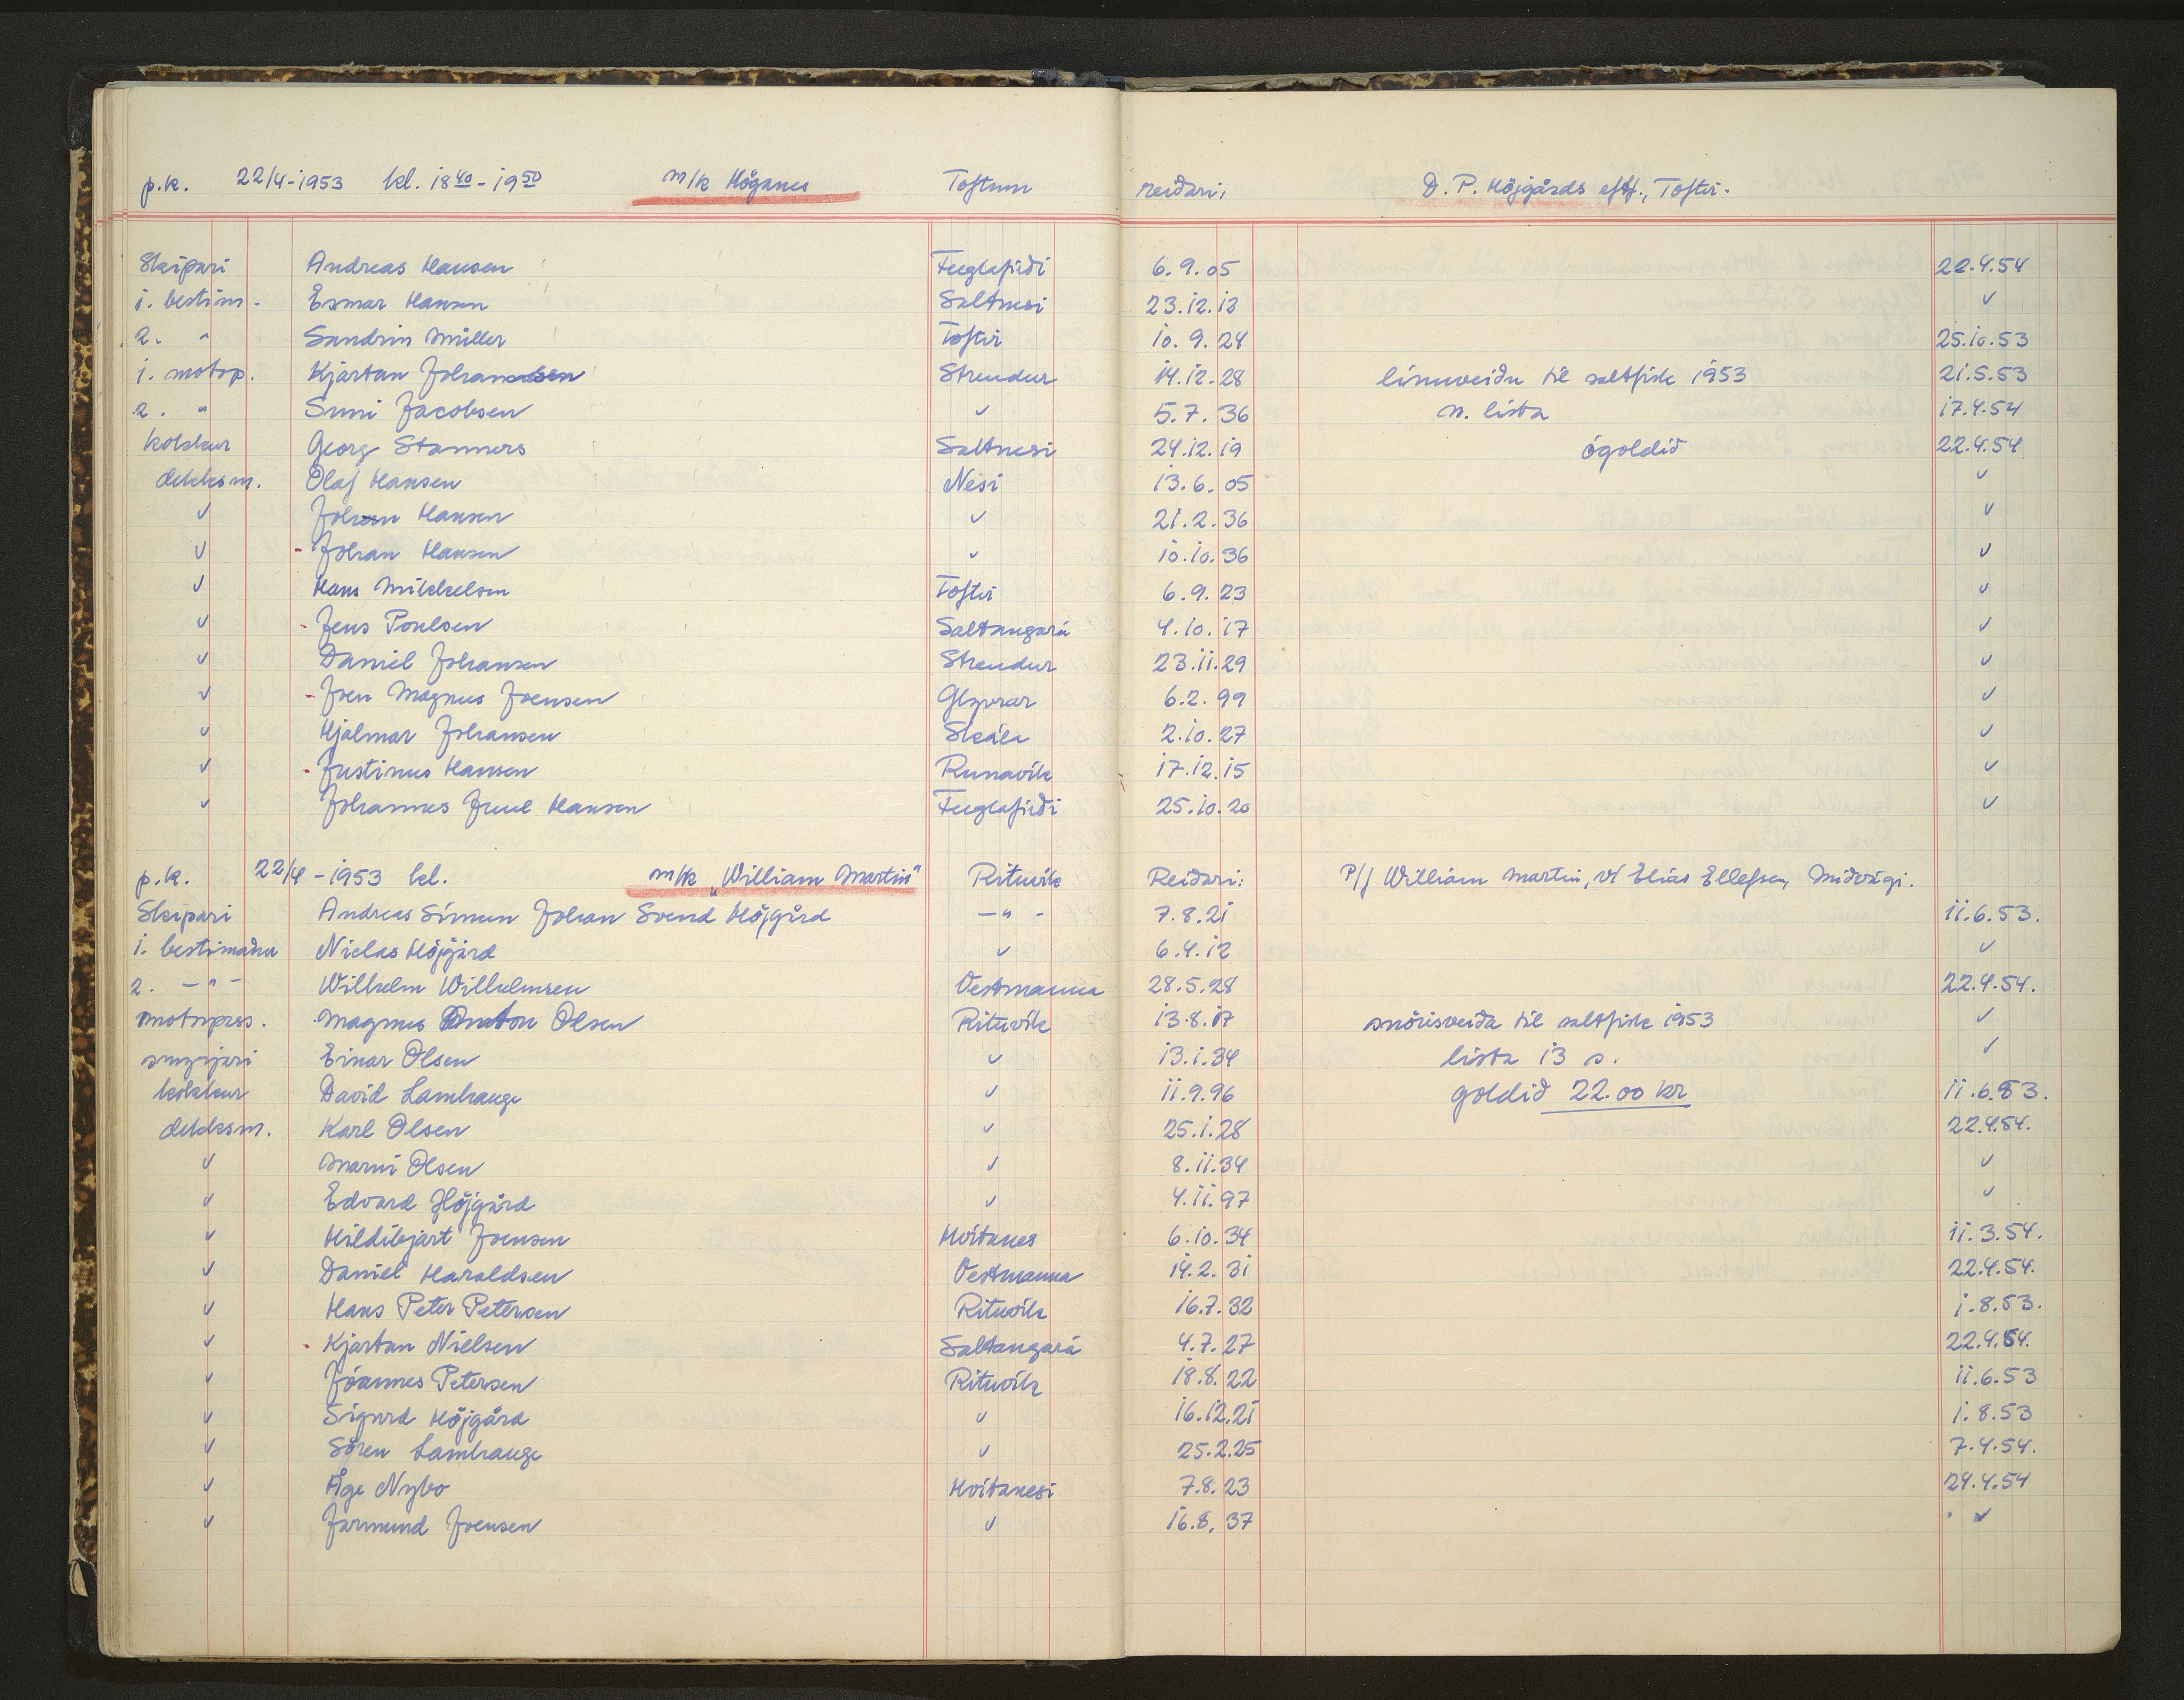 p.k. 22/4-1953 kl. 18 40 - 19 50 m/k Höganes Toftum reidari, D. P. Höjgårds eftf., Toftir.
Skipari Andreas Hansen Fuglafirdi 6.9.05 22.4.54
1. bestim. Esmar Hansen Saltnesi 23.12.12 ✓
2. " Sandrin Müller Toftir 10.9.24 25.10.53
1. motop. Kjartan Johansen Strendur 14.12.28 línuveidu til saltfisk 1953 21.5.53
2. " Sunni Jacobsen ✓ 5.7.36 n. lista 17.4.54
kokkur Georg Stanners Saltnesi 24.12.19 ógoldid 22.4.54
dekksm. Olaf Hansen Nesi 13.6.05 ✓
✓ Johan Hansen ✓ 21.2.36 ✓
✓ - Johan Hansen ✓ 10.10.36 ✓
✓ Hans Mikkelsen Toftir 6.9.23 ✓
✓ - Jens Poulsen Saltangará 4.10.17 ✓
✓ Daniel Johansen Strendur 23.11.29 ✓
✓ - Joen Magnus Joensen Glyvrar 6.2.99 ✓
✓ Hjalmar Johansen Skála 2.10.27 ✓
✓ - Justinus Hansen Runavík 17.12.15 ✓
✓ Johannes Juul Hansen Fuglafirdi 25.10.20 ✓
p.k. 22/4-1953 kl. m/k "William Martin" Rituvík Reidari: P/f William Martin, v/ Elias Ellefsen, Midvági.
Skipari Andreas Símun Johan Svend Höjgård -"- 7.8.21 11.6.53.
1. bestimadur Niclas Höjgård ✓ 6.4.12 ✓
2. -"- Wilhelm Wilhelmsen Vestmanna 28.5.28 22.4.54.
motorpas. Magnus Anton Olsen Rituvík 13.8.17 snörisveida til saltfisk 1953 ✓
smyrjari Einar Olsen ✓ 13.1.34 lista 13 s. ✓
kokkur David Lamhauge ✓ 11.9.96 goldid 22.00 kr 11.6.53.
dekksm. Karl Olsen ✓ 25.1.28 22.4.54.
✓ Marni Olsen ✓ 8.11.34 ✓
✓ Edvard Höjgård ✓ 4.11.97 ✓
✓ Hildibjart Joensen Hvitanes 6.10.34 11.3.54.
✓ Daniel Haraldsen Vestmanna 14.2.31 22.4.54.
✓ Hans Peter Petersen Rituvík 16.7.32 1.8.53.
✓ - Kjartan Nielsen Saltangará 4.7.27 22.4.54.
✓ Jóannes Petersen Rituvík 18.8.22 11.6.53
✓ Sigurd Höjgård ✓ 16.12.21 1.8.53
✓ Sören Lamhauge ✓ 25.2.25 7.4.54.
✓ Åge Nybo Hvitanesi 7.8.23 24.4.54
✓ Jarmund Joensen ✓ 16.8.37 " ✓